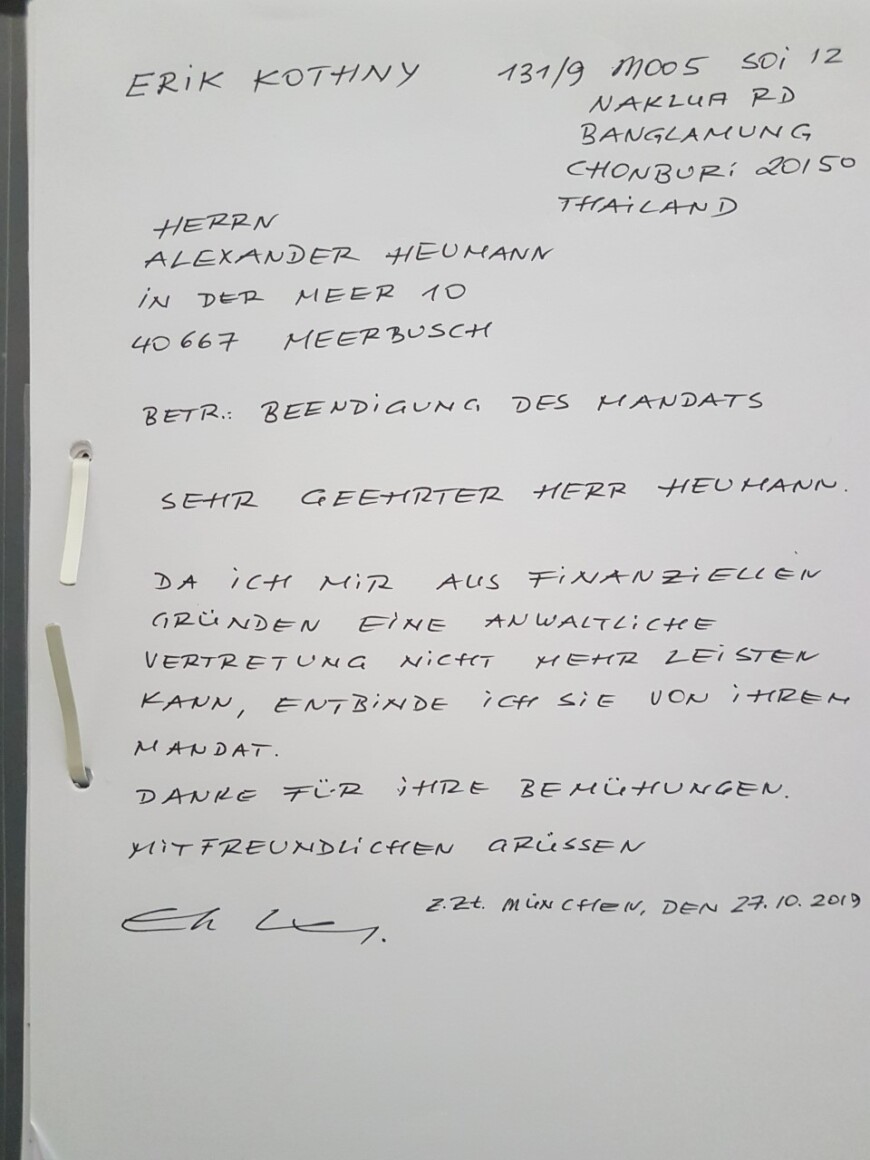 ERIK KOTHNY 131/9 MOO5 SOI 12
NAKLUA RD
BANGLAMUNG
CHONBURI 20150
THAILAND
HERRN
ALEXANDER HEUMANN
IN DER MEER 10
40667 MEERBUSCH
BETR.: BEENDIGUNG DES MANDATS
SEHR GEEHRTER HERR HEUMANN.
DA ICH MIR AUS FINANZIELLEN
GRÜNDEN EINE ANWALTLICHE
VERTRETUNG NICHT MEHR LEISTEN
KANN, ENTBINDE ICH SIE VON IHREM
MANDAT.
DANKE FÜR IHRE BEMÜHUNGEN.
MIT FREUNDLICHEN GRÜSSEN
Z.Zt. MÜNCHEN, DEN 27.10.2019